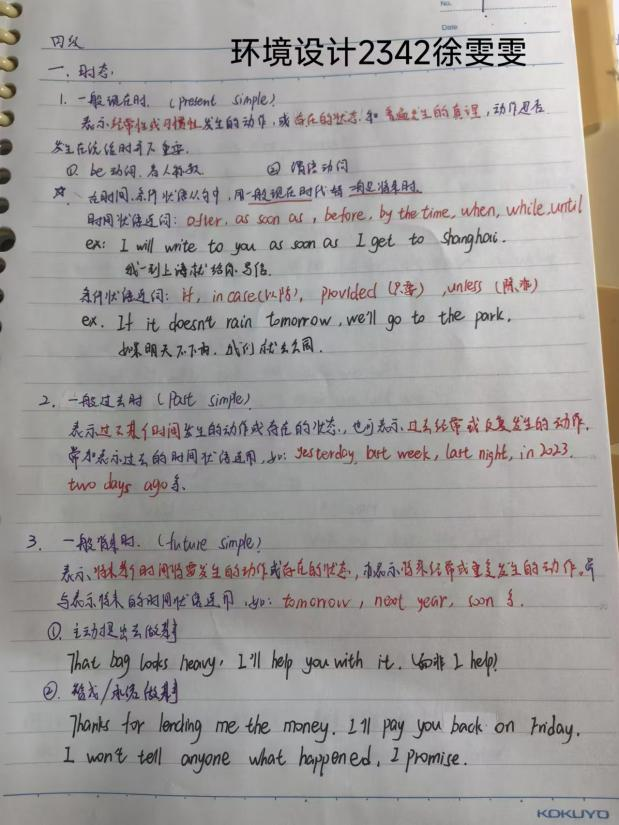 No.
Date
环境设计2342徐雯雯
一、时态:
1. 一般现在时. (present simple)
表示经常性或习惯性发生的动作,或存在的状态和普遍发生的真理,动作是否
发生在说话时并不重要.
①. be动词.各人称数. ② 谓语动词
☆. 在时间.条件状语从句中,用一般现在时代替 将来时.
时间状语连词: after, as soon as, before, by the time, when, while, until
ex: I will write to you as soon as I get to Shanghai.
我一到上海就给你写信.
条件状语连词: if, in case(以防), provided (只要), unless (除非)
ex. If it doesn't rain tomorrow, we'll go to the park.
如果明天不下雨.我们就去公园.
2. 一般过去时 (Past simple)
表示过去某个时间发生的动作或存在的状态.,也可表示过去经常或反复发生的动作.
常和表示过去的时间状语连用,如: yesterday, last week, last night, in 2023.
two days ago等.
3. 一般将来时. (future simple)
表示将来某个时间将要发生的动作或存在的状态,亦表示将来经常或重复发生的动作。常
与表示将来的时间状语连用.如: tomorrow, next year, soon 等.
①. 主动提出去做某事
That bag looks heavy, I'll help you with it. (如非 I help)
②. 答应/承诺做某事
Thanks for lending me the money. I'll pay you back on Friday.
I won't tell anyone what happened, I promise.
KOKUYO